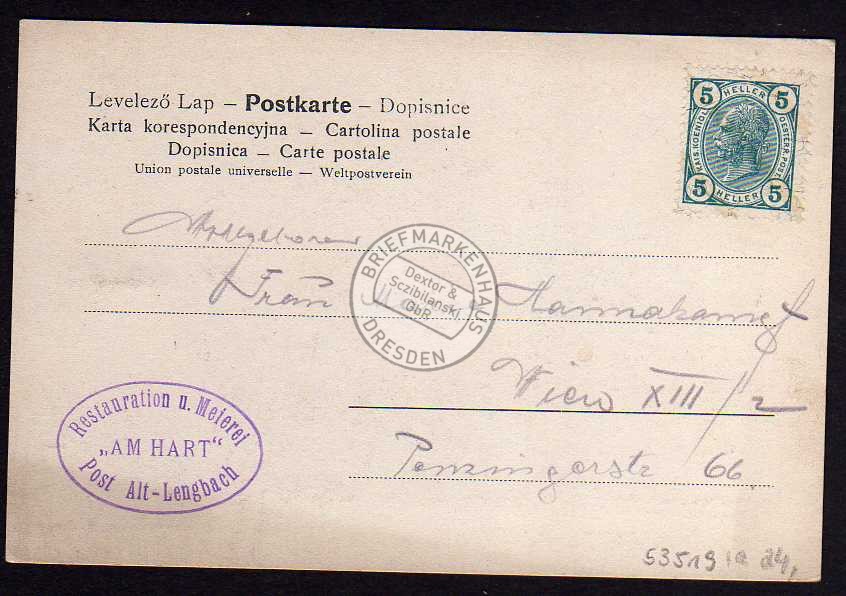 Levelező Lap – Postkarte – Dopisnice
Karta korespondencyjna – Cartolina postale
Dopisnica – Carte postale
Union postale universelle – Weltpostverein
5 HELLER 5
KAIS. KOENIGL. OESTERR. POST
5 HELLER 5
Frau
Wien XIII/2
Penzingerstr 66.
BRIEFMARKENHAUS
Dextor &
Sczibilanski
GbR
DRESDEN
Restauration u. Meierei
„AM HART“
Post Alt-Lengbach
53519
24,